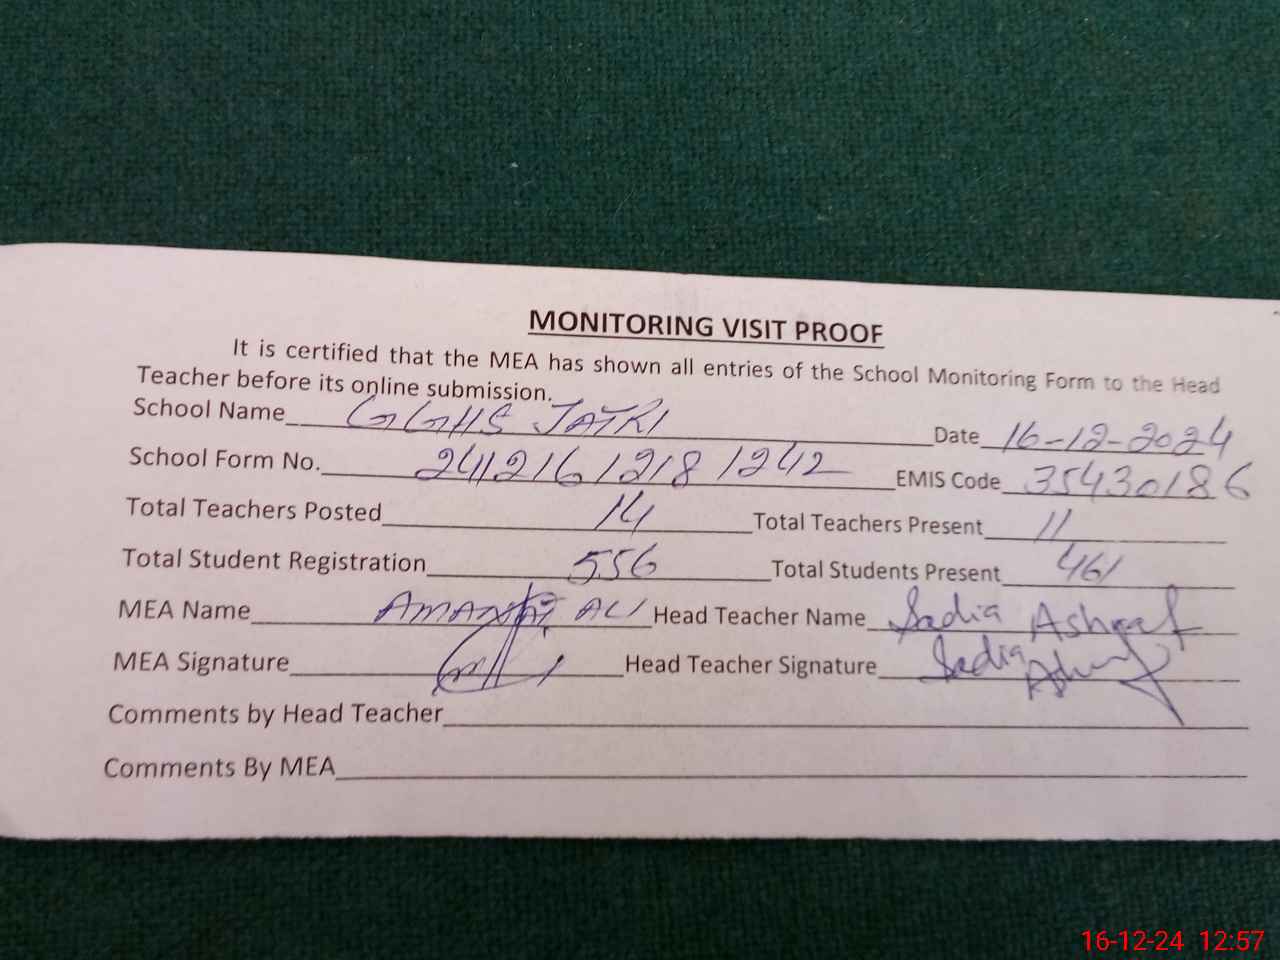 MONITORING VISIT PROOF
It is certified that the MEA has shown all entries of the School Monitoring Form to the Head
Teacher before its online submission.
School Name GGHS JATRI Date 16-12-2024
School Form No. 241216 1218 1242 EMIS Code 35430186
Total Teachers Posted 14 Total Teachers Present 11
Total Student Registration 556 Total Students Present 461
MEA Name AMANAT ALI Head Teacher Name Sadia Ashraf
MEA Signature Head Teacher Signature Sadia Ashraf
Comments by Head Teacher
Comments By MEA
16-12-24 12:57